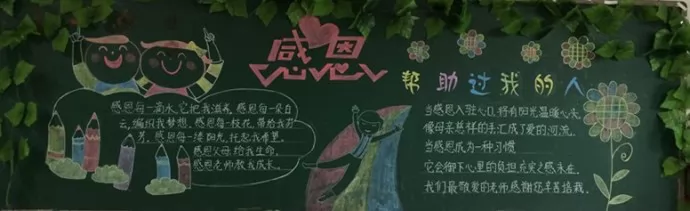 感恩
帮助过我的人
感恩每一滴水,它把我滋养,感恩每一朵白
云,编织我梦想,感恩每一枝花,带给我芬
芳,感恩每一缕阳光,托起我希望。
感恩父母,给我生命,
感恩老师,教我成长。
当感恩入驻心口,将有阳光温暖心头,
像母亲慈祥的手,汇成了爱的河流。
当感恩成为一种习惯
它会卸下心里的负担,充实之感未在,
我们最敬爱的老师,感谢您辛苦培栽。